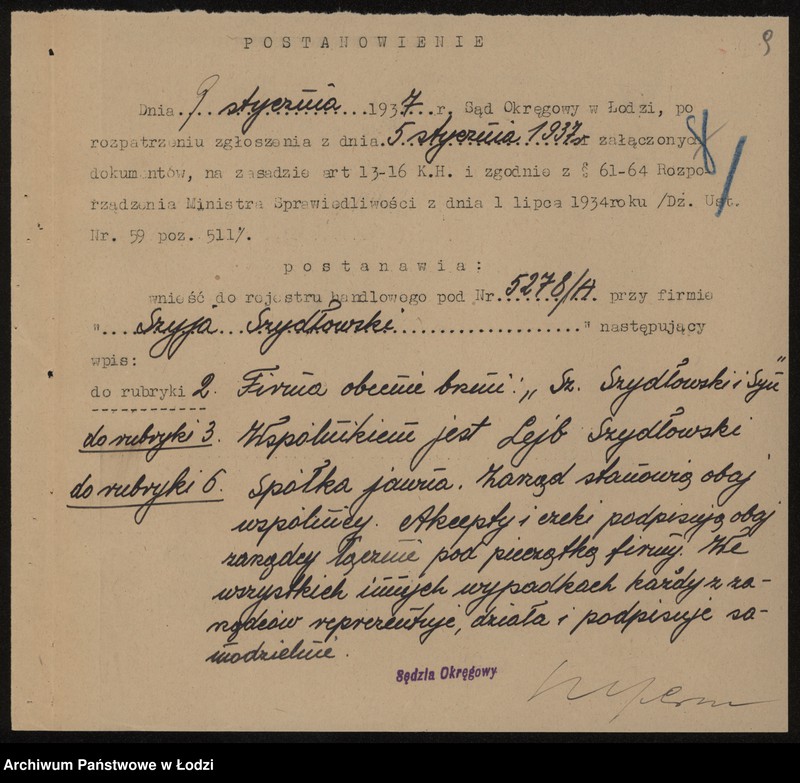 9
POSTANOWIENIE
Dnia 9 stycznia 1937 r. Sąd Okręgowy w Łodzi, po
rozpatrzeniu zgłoszenia z dnia 5 stycznia 1937 r załączonych
dokumentów, na zasadzie art 13-16 K.H. i zgodnie z § 61-64 Rozpo-
rządzenia Ministra Sprawiedliwości z dnia 1 lipca 1934roku /Dż. Ust.
Nr. 59 poz. 511/.
postanawia:
wnieść do rejestru handlowego pod Nr. 5278/A. przy firmie
"....Szyja...Szydłowski...................." następujący
wpis:
do rubryki 2. Firma obecnie brzmi: „Sz. Szydłowski i Syn”
do rubryki 3. Wspólnikiem jest Lejb Szydłowski
do rubryki 6. Spółka jawna. Zarząd stanowią obaj
wspólnicy. Akcepty i czeki podpisują obaj
zarządcy łącznie pod pieczątką firmy. We
wszystkich innych wypadkach każdy z za-
rządców reprezentuje, działa i podpisuje sa-
modzielnie.
Sędzia Okręgowy
Archiwum Państwowe w Łodzi